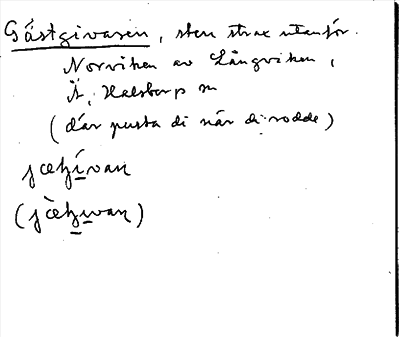 Gästgivaren, sten strax utanför
Norviken av Långviken,
Ä, Halstorp sn
(där pusta di når di rodde)
jætʒívan
(jæ̀tʒivan)